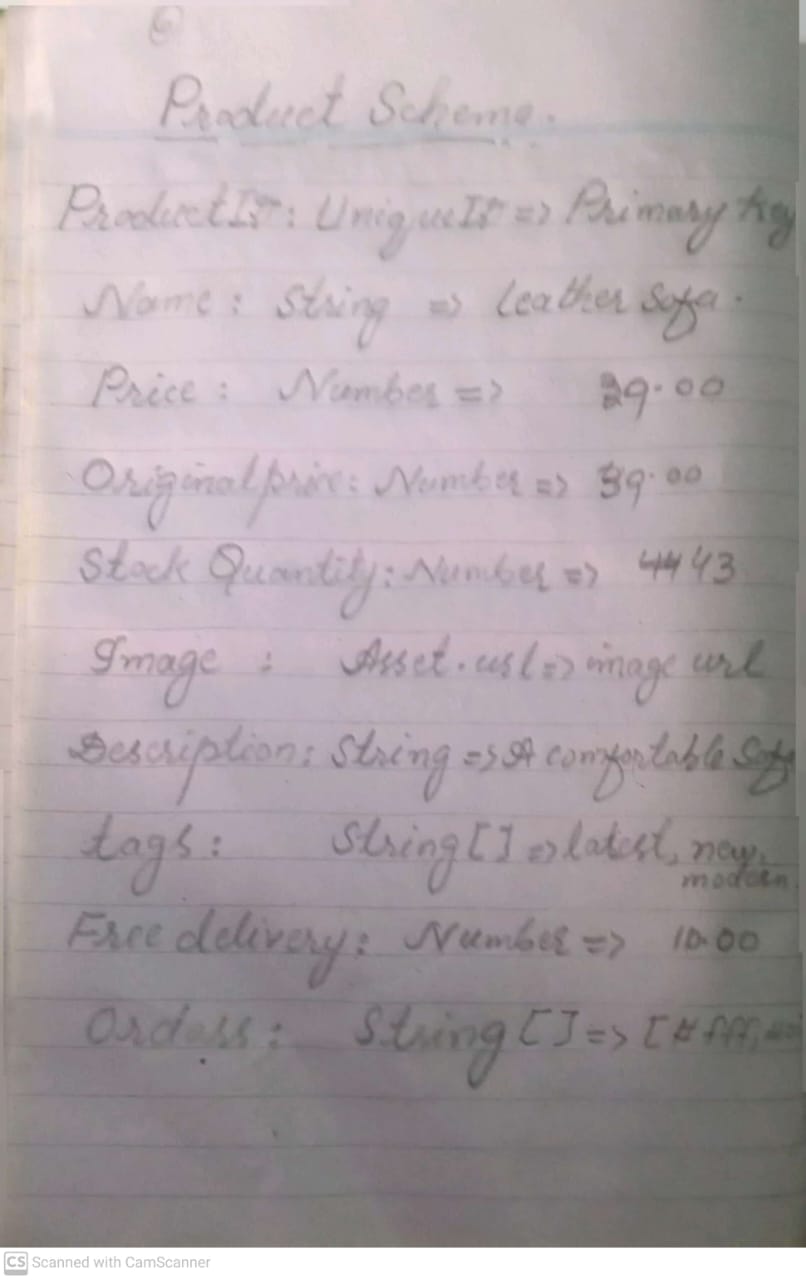 6
Product Schema.
ProductID: UniqueID => Primary key
Name: String => Leather Sofa.
Price: Number => 29.00
Originalprice: Number => 39.00
Stock Quantity: Number => 4443
Image: Asset.url => image url
Description: String => A comfortable Sofa
tags: String [] => latest, new,
modern.
Free delivery: Number => 10.00
Orders: String [] => [#fff,
CS Scanned with CamScanner